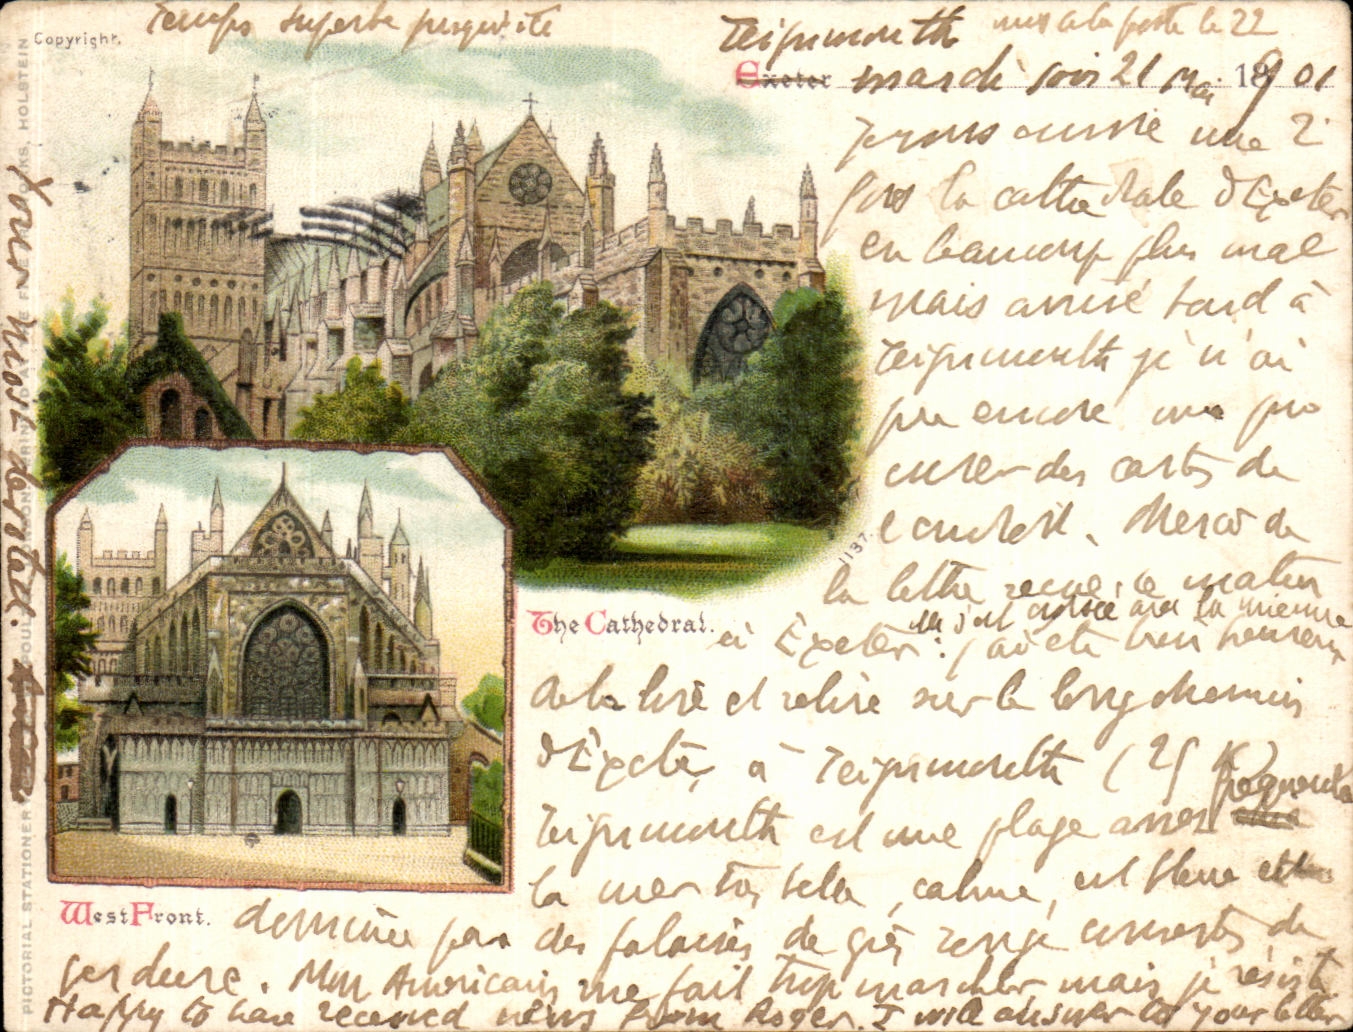 Copyright.
Temps superbe
Teignmouth mis à la poste le 22
Exeter mardi soir 21 Mai 1901
une 2e
fois la cathédrale d'Exeter
en beaucoup plus mal
mais arrivé tard à
Teignmouth je n'ai
pu encore me pro
curer des cartes de
l'endroit. Merci de
la lettre reçue ce matin
elle s'est croisée avec la mienne
à Exeter: j'ai été bien heureux
de la lire et relire sur le long chemin
d'Exeter à Teignmouth (25 K)
Teignmouth est une plage assez fréquentée
la mer très belle, calme, est bleue et
dominée par des falaises de grès rouge couvertes de
verdure. Mon Américain me fait trop marcher mais je résiste
Happy to have received news from Roger. I will answer to your letter
Your most devoted.
The Cathedral.
West Front.
1137.
PICTORIAL STATIONERY
HOLSTEIN